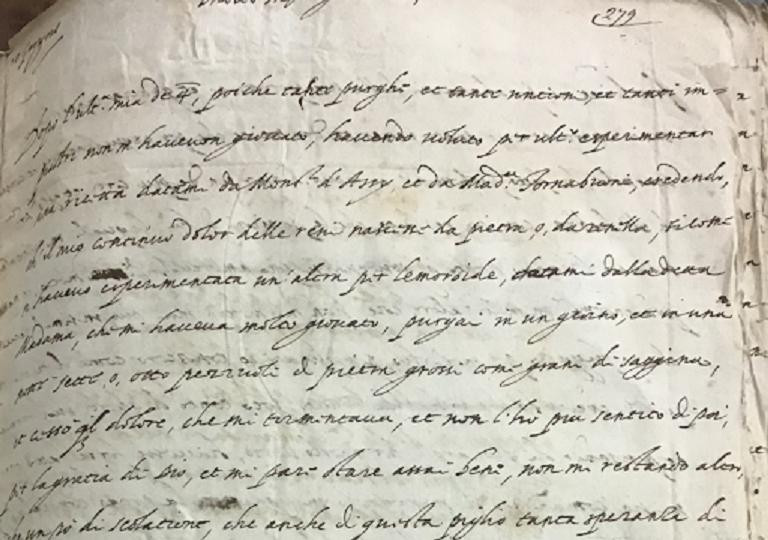 279
Dopo l'ult.ª mia de 4, poiche tante purghe, et tante untioni, et tanti im=
piastri non m'havevon giovato, havendo voluto p. ult.º esperimentar
ricetta datami da Mons.r d'Assy et da Mad.ª Tornabuoni, credendo,
il mio continuo dolor delle reni nascense da pietra o, da renella,
havevo esperimentata un'altra p. le moroide, datami dalla detta
Madama, che mi haveva molto giovato, purgai in un giorno, et in una
notte sette o, otto pezzuoli di pietra grossi come grani di saggina,
et cessò dolore, che mi tormentava, et non l'ho più sentito di poi,
p. la gratia di Dio, et mi pare stare assai bene, non mi restando altro,
un pò di scolatione, che anche di questa piglio tanta speranza di